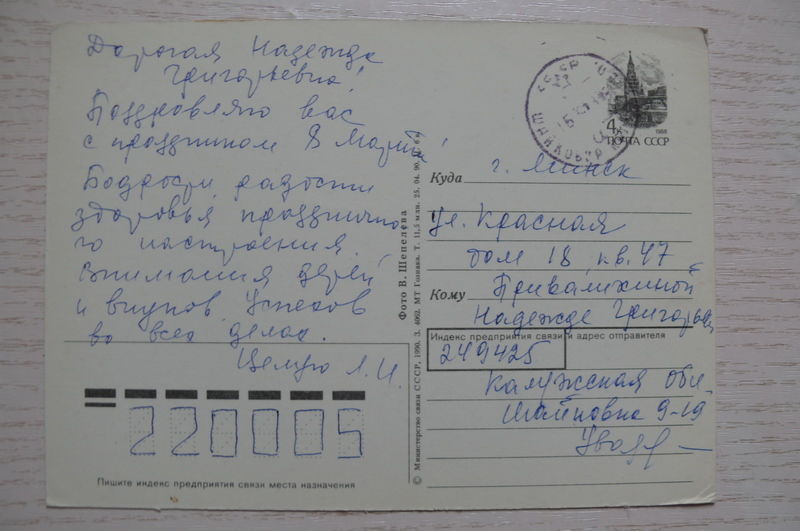 Дорогая Надежда
Григорьевна!
Поздровляю вас
с праздником 8 Марта!
Бодрости радости
здоровья празднично
го настроения
внимания детей
и внуков. Успехов
во всех делах.
Целую Л.И.
220005
Пишите индекс предприятия связи места назначения
© Министерство связи СССР, 1990. З. 4062. МТ Гознака. Т. 11,5 млн. 25. 04. 90.
Фото В. Шепелева
4к
1988
ПОЧТА СССР
Куда г. Минск
ул. Красная
дом 18 кв. 47
Кому
Надежде Григорьев
Индекс предприятия связи и адрес отправителя
249425
Калужская обл
9-19